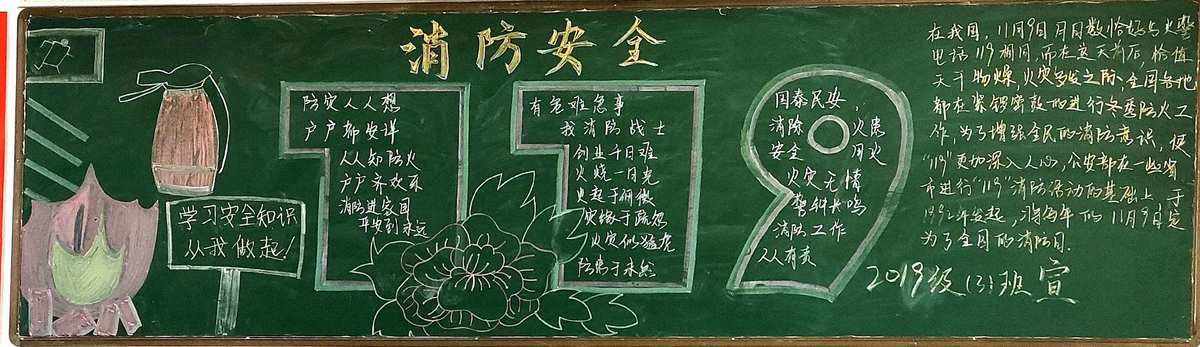 消防安全
学习安全知识
从我做起!
防灾人人想
户户都安详
人人知防火
户户齐欢乐
消防进家园
平安到永远
有危难急事
找消防战士
创业千日难
火烧一日光
火起于细微
灾缘于疏忽
火灾似猛虎
防偏于未然
国泰民安,
消除 火患
安全 用火
火灾无情
警钟长鸣
消防工作
人人有责
在我国,11月9日月日数恰好与火警
电话119相同,而在这天前后,恰值
天干物燥,火灾多发之际,全国各地
都在紧锣密鼓的进行冬季防火工
作,为了增强全民的消防意识,使
"119"更加深入人心,公安部在一些省
市进行"119"消防活动的基础上,于
1992年发起,将每年的11月9日定
为了全国的消防日.
2019级(3)班 宣